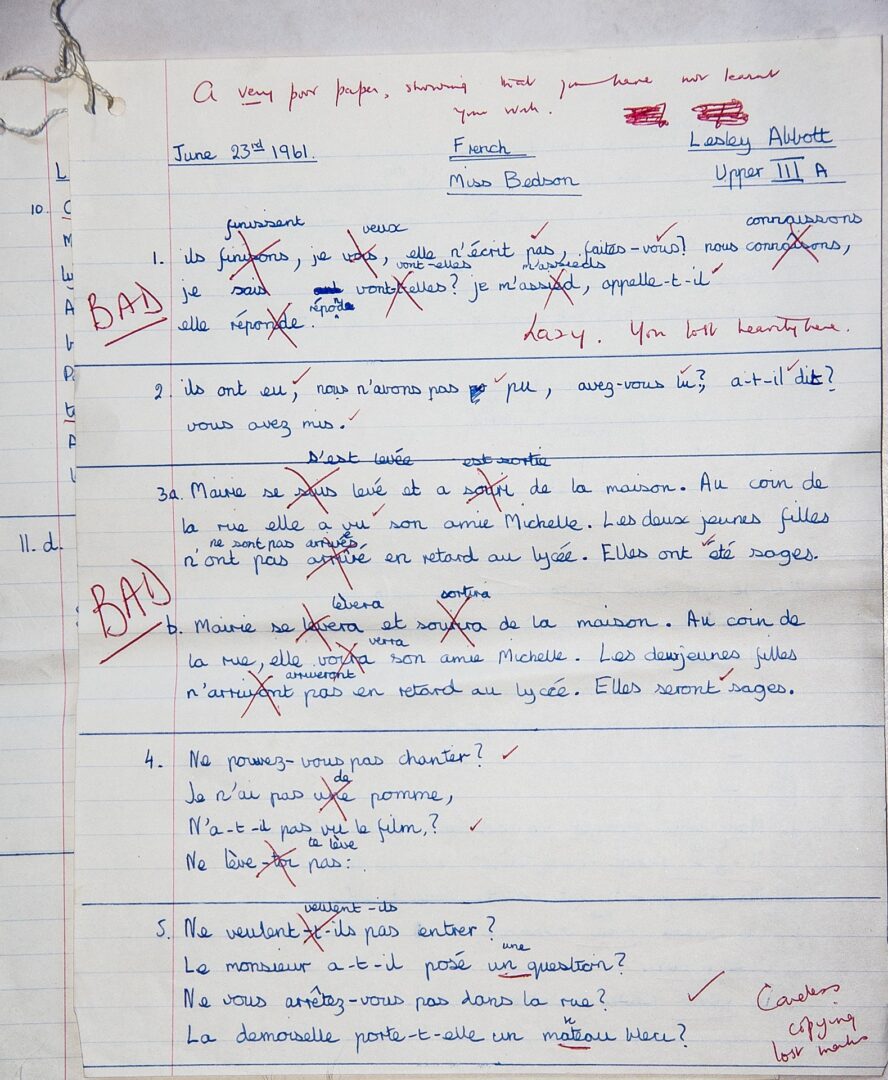 A very poor paper, showing that you have not learnt
your work.
June 23rd 1961. French Lesley Abbott
Miss Bedson Upper III A
finissent veux connaissons
1. ils finisons, je vous, elle n'écrit pas, faites-vous? nous connaîsons,
vont-elles m'assieds
BAD je sais vont-t-elles? je m'assied, appelle-t-il
réponde
elle réponde.
Lazy. You lost heavily here.
2. ils ont eu, nous n'avons pas pu, avez-vous lu?, a-t-il dit?
vous avez mis.
s'est levée est sortie
3a. Mairie se sous levé et a souri de la maison. Au coin de
la rue elle a vu son amie Michelle. Les deux jeunes filles
ne sont pas arrivés
n'ont pas arrivé en retard au lycée. Elles ont été sages.
BAD
lèvera sortira
b. Mairie se levera et sourira de la maison. Au coin de
verra
la rue, elle voira son amie Michelle. Les deuxjeunes filles
arriveront
n'arrivont pas en retard au lycée. Elles seront sages.
4. Ne pouvez-vous pas chanter?
de
Je n'ai pas une pomme,
N'a-t-il pas vu le film,?
te lève
Ne lève-toi pas:
veulent-ils
5. Ne veulent-t-ils pas entrer?
une
Le monsieur a-t-il posé un question?
Ne vous arrêtez-vous pas dans la rue?
n
La demoiselle porte-t-elle un mateau bleu?
Careless
copying
lost marks
10.
11. d.